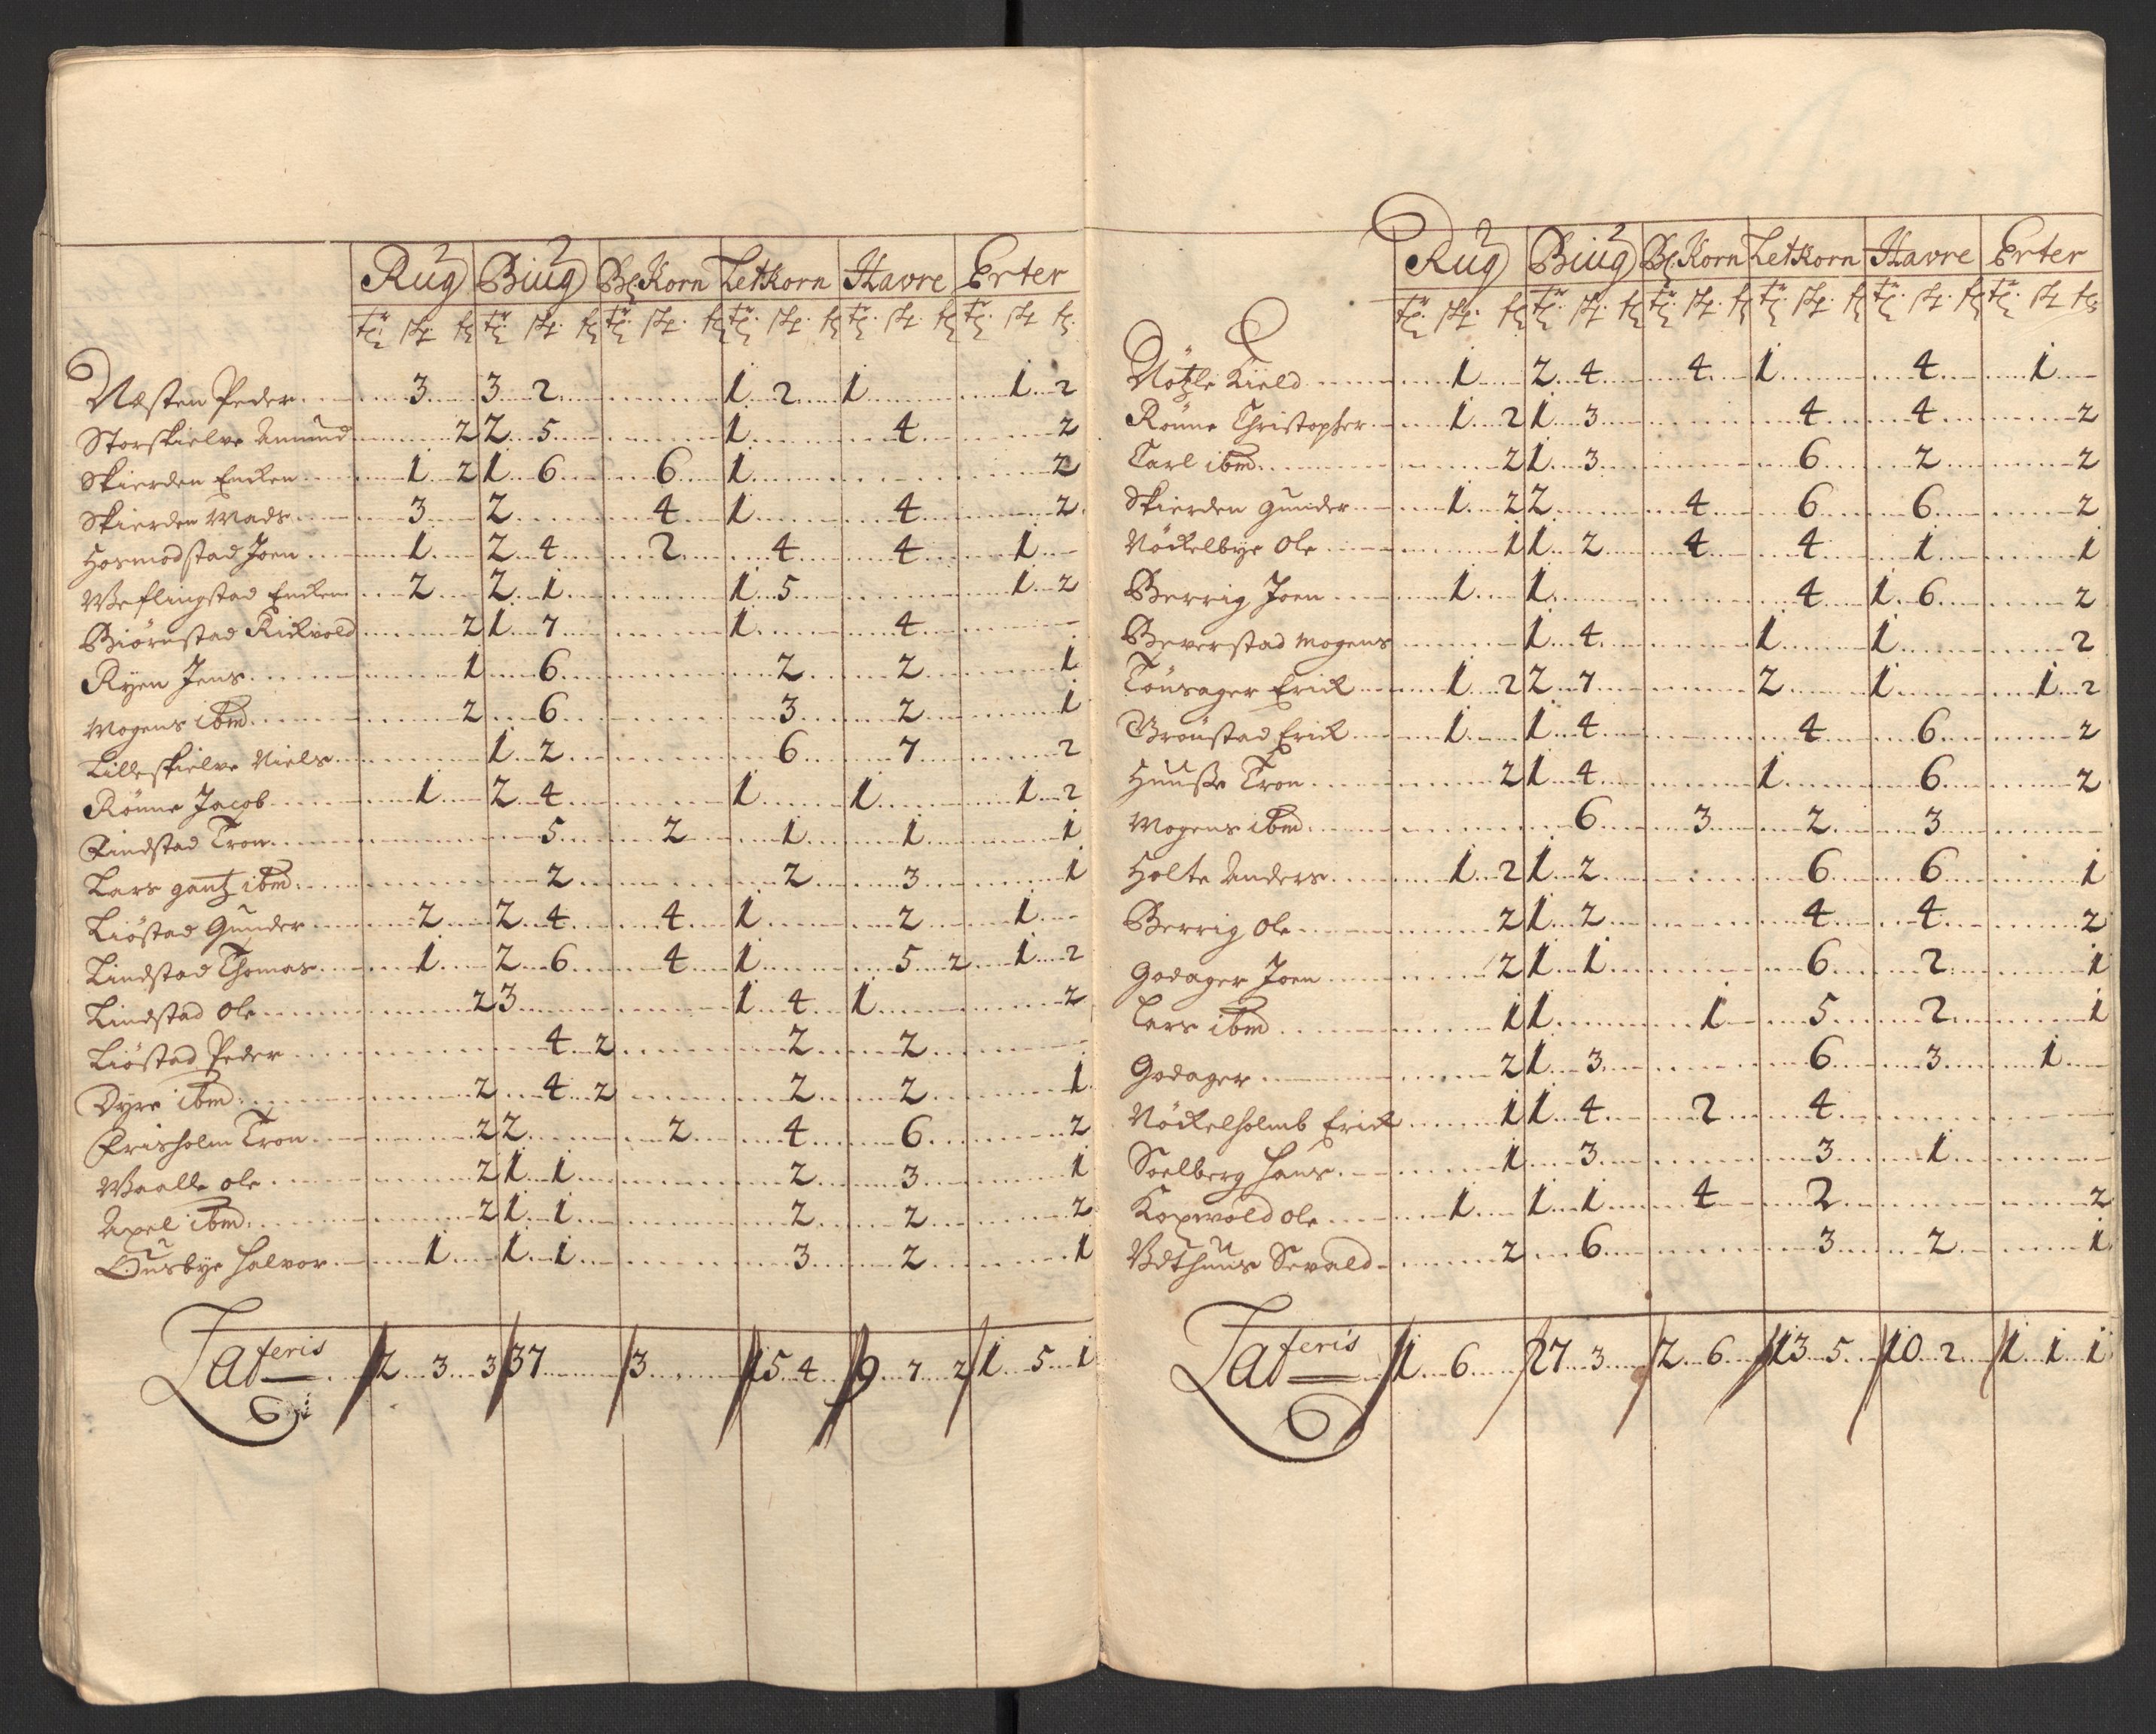 Rug Biug Bl: Korn Letkorn Havre Erter
tr. sk. f. tr. sk. f. tr. sk. f. tr. sk. f. tr. sk. f. tr. sk. f.
Næsten Peder 3 3 2 1 2 1 1 2
Storskielve Amund 2 2 5 1 4 2
Skierden Encken 1 2 1 6 6 1 2
Skierden Mads 3 2 4 1 4 2
Hosmodstad Joen 1 2 4 2 4 4 1
Weflingstad Encken 2 2 1 1 5 1 2
Biörnstad Rickvold 2 1 7 1 4
Ryen Jens 1 6 2 2 1
Mogens ibm 2 6 3 2 1
Lilleskielve Niels 1 2 6 7 2
Rönne Jacob 1 2 4 1 1 1 2
Findstad Tron 5 2 1 1 1
Lars gantz ibm 2 2 3 1
Liöstad Gunder 2 2 4 4 1 2 1
Lindstad Thomas 1 2 6 4 1 5 2 1 2
Lindstad Ole 2 3 1 4 1 2
Liöstad Peder 4 2 2 2
Dyre ibm 2 4 2 2 2 1
Frisholm Tron 2 2 2 4 6 2
Waalle Ole 2 1 1 2 3 1
Axel ibm 2 1 1 2 2 2
Ousbye Halvor 1 1 1 3 2 1
Lateris 2 3 3 37 3 15 4 9 7 2 1 5 1
Rug Biug Bl: Korn Letkorn Havre Erter
tr. sk. f. tr. sk. f. tr. sk. f. tr. sk. f. tr. sk. f. tr. sk. f.
Nötzle Kield 1 2 4 4 1 4 1
Rönne Christopher 1 2 1 3 4 4 2
Carl ibm 2 1 3 6 2 2
Skierden Gunder 1 2 2 4 6 6 2
Nöckelbye Ole 1 1 2 4 4 1 1
Berrig Joen 1 1 4 1 6 2
Beverstad Mogens 1 4 1 1 2
Tönsager Erick 1 2 2 7 2 1 1 2
Grönstad Erick 1 1 4 4 6 2
Huusse Tron 2 1 4 1 6 2
Mogens ibm 6 3 2 3
Holte Anders 1 2 1 2 6 6 1
Berrig Ole 2 1 2 4 4 2
Godager Joen 2 1 1 6 2 1
Lars ibm 1 1 1 5 2 1
Godager 2 1 3 6 3 1
Nöckelholmb Erick 1 1 4 2 4
Soelberg Hans 1 3 3 1
Koxwold Ole 1 1 1 4 2 2
Udthuus Sevald 2 6 3 2 1
Lateris 1 6 27 3 2 6 13 5 10 2 1 1 1